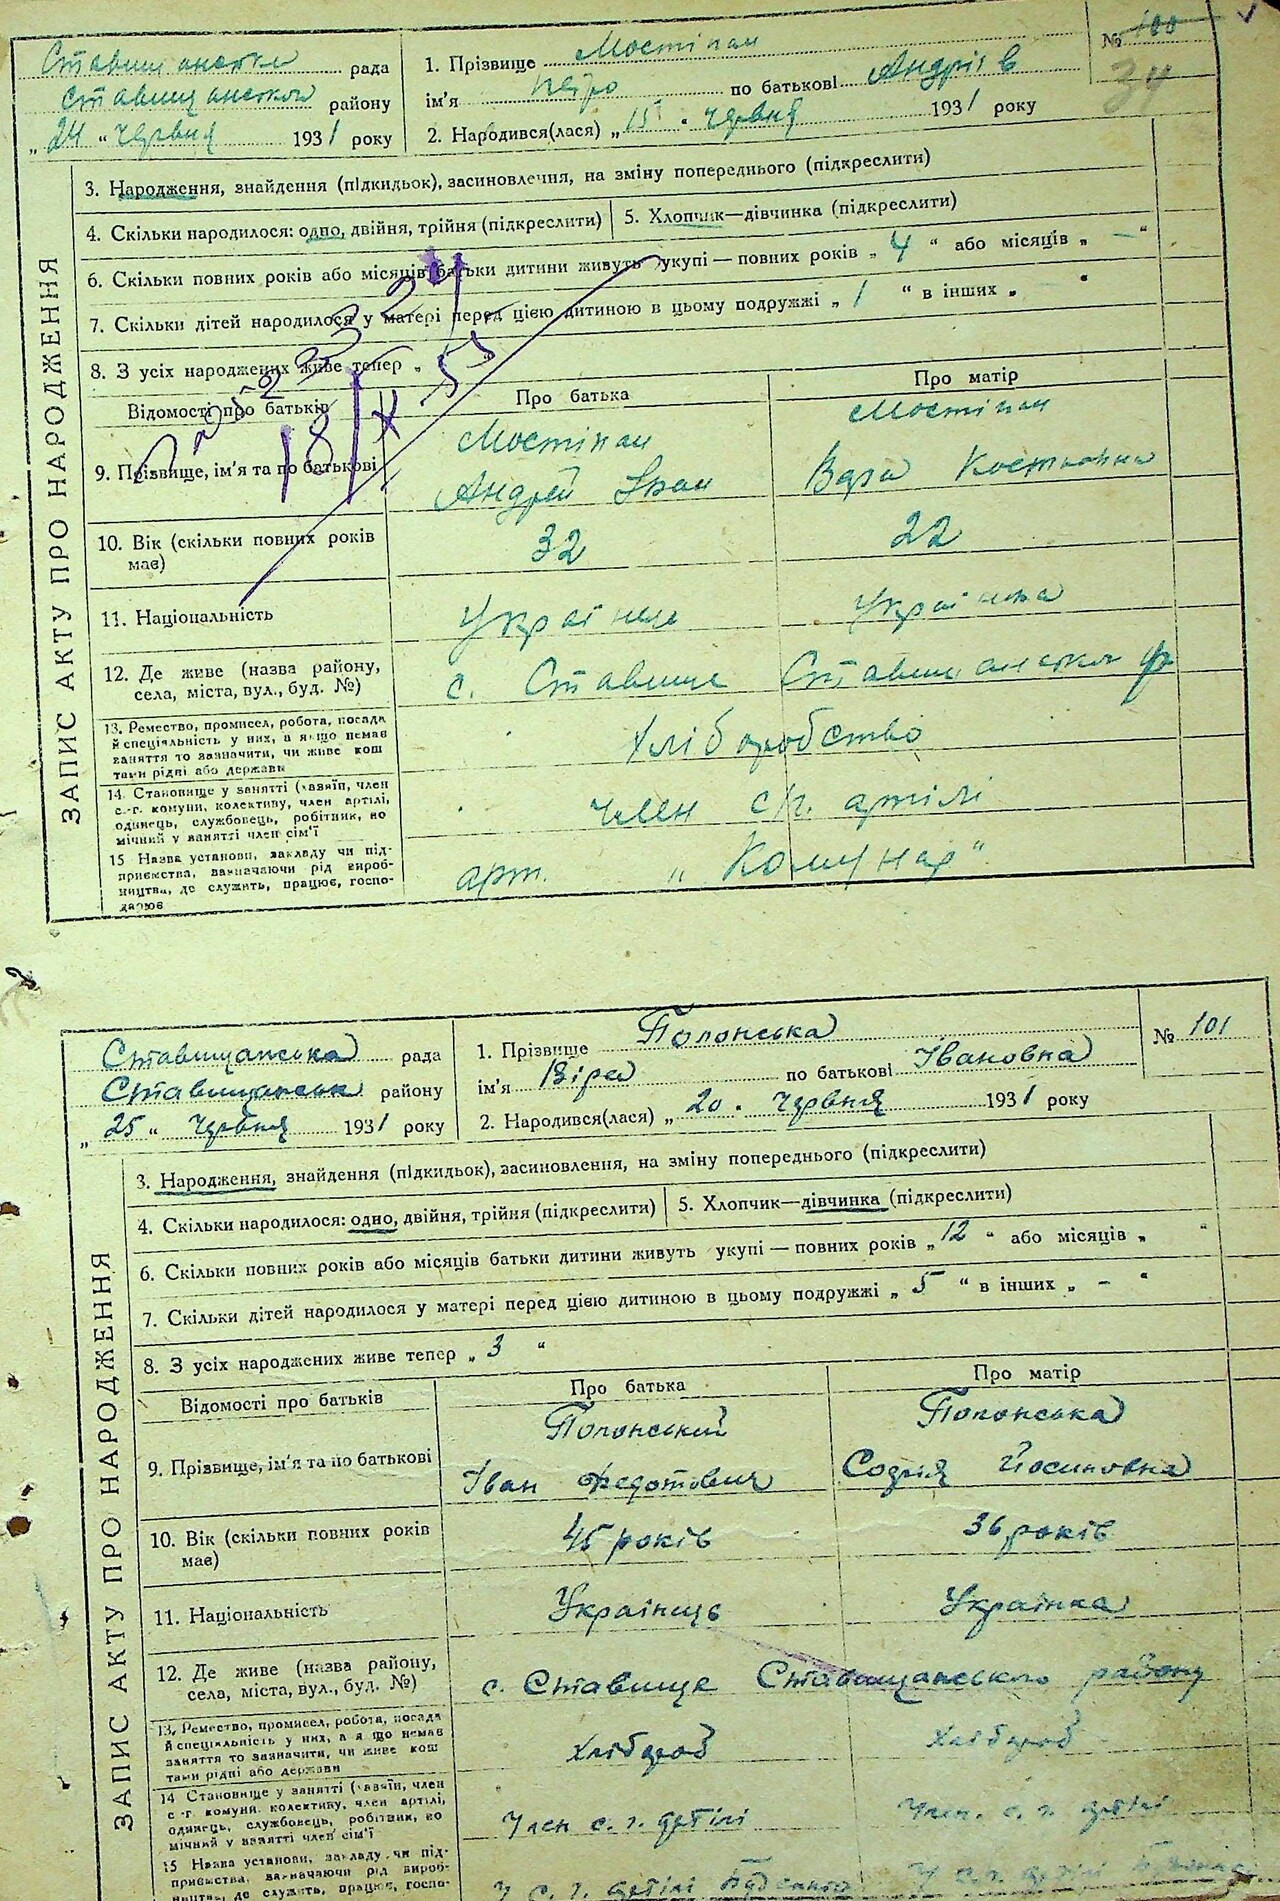 Ставищанська рада
Ставищанськ району
„24“ червня 1931 року
1. Прізвище Мостіпан
ім'я Петро по батькові Андріїв
2. Народився(лася) „15“ червня 1931 року
№ 100
34
ЗАПИС АКТУ ПРО НАРОДЖЕННЯ
3. Народження, знайдення (підкидьок), засиновлення, на зміну попереднього (підкреслити)
4. Скільки народилося: одно, двійня, трійня (підкреслити)
5. Хлопчик—дівчинка (підкреслити)
6. Скільки повних років або місяців батьки дитини живуть укупі — повних років „4“ або місяців „—“
7. Скільки дітей народилося у матері перед цією дитиною в цьому подружжі „1“ в інших „ “
8. З усіх народжених живе тепер „
Відомості про батьків
Про батька
Про матір
9. Прізвище, ім'я та по батькові
Мостіпан
Андрей Іван
Мостіпан
Вера
10. Вік (скільки повних років має)
32
22
11. Національність
Українець
Українка
12. Де живе (назва району,
села, міста, вул., буд. №)
с. Ставище Ставищанського р
13. Ремество, промисел, робота, посада
й спеціяльність у них, а якщо немає
заняття то зазначити, чи живе кош
тами рідні або держави
Хліборобство
14. Становище у занятті (хазяїн, член
с.-г. комуни, колективу, член артілі,
одинець, службовець, робітник, по
мічний у занятті член сім'ї
член с/г. артілі
15 Назва установи, закладу чи під-
приємства, зазначаючи рід вироб-
ництва, де служить, працює, госпо-
дарює
арт. „Комунар“
Ставищанська рада
Ставищанськ району
„25“ червня 1931 року
1. Прізвище Полонська
ім'я Віра по батькові Івановна
2. Народився(лася) „20. червня 1931 року
№ 101
ЗАПИС АКТУ ПРО НАРОДЖЕННЯ
3. Народження, знайдення (підкидьок), засиновлення, на зміну попереднього (підкреслити)
4. Скільки народилося: одно, двійня, трійня (підкреслити)
5. Хлопчик—дівчинка (підкреслити)
6. Скільки повних років або місяців батьки дитини живуть укупі — повних років „12“ або місяців „ “
7. Скільки дітей народилося у матері перед цією дитиною в цьому подружжі „5“ в інших „—“
8. З усіх народжених живе тепер „3“
Відомості про батьків
Про батька
Про матір
9. Прізвище, ім'я та по батькові
Полонський
Іван Федотович
Полонська
Софія Йосиповна
10. Вік (скільки повних років має)
45 років
36 років
11. Національність
Українець
Українка
12. Де живе (назва району,
села, міста, вул., буд. №)
с. Ставище Ставищанського району
13. Ремество, промисел, робота, посада
й спеціяльність у них, а якщо немає
заняття то зазначити, чи живе кош
тами рідні або держави
Хлібороб
Хлібороб
14 Становище у занятті (хазяїн, член
с.-г. комуни, колективу, член артілі,
одинець, службовець, робітник, по
мічний у занятті член сім'ї
Член с. г. артілі
Член. с. г. артілі
15 Назва установи, закладу чи під-
приємства, зазначаючи рід вироб-
ництва, де служить, працює, госпо-
У с. г. артілі
У с. г. артілі